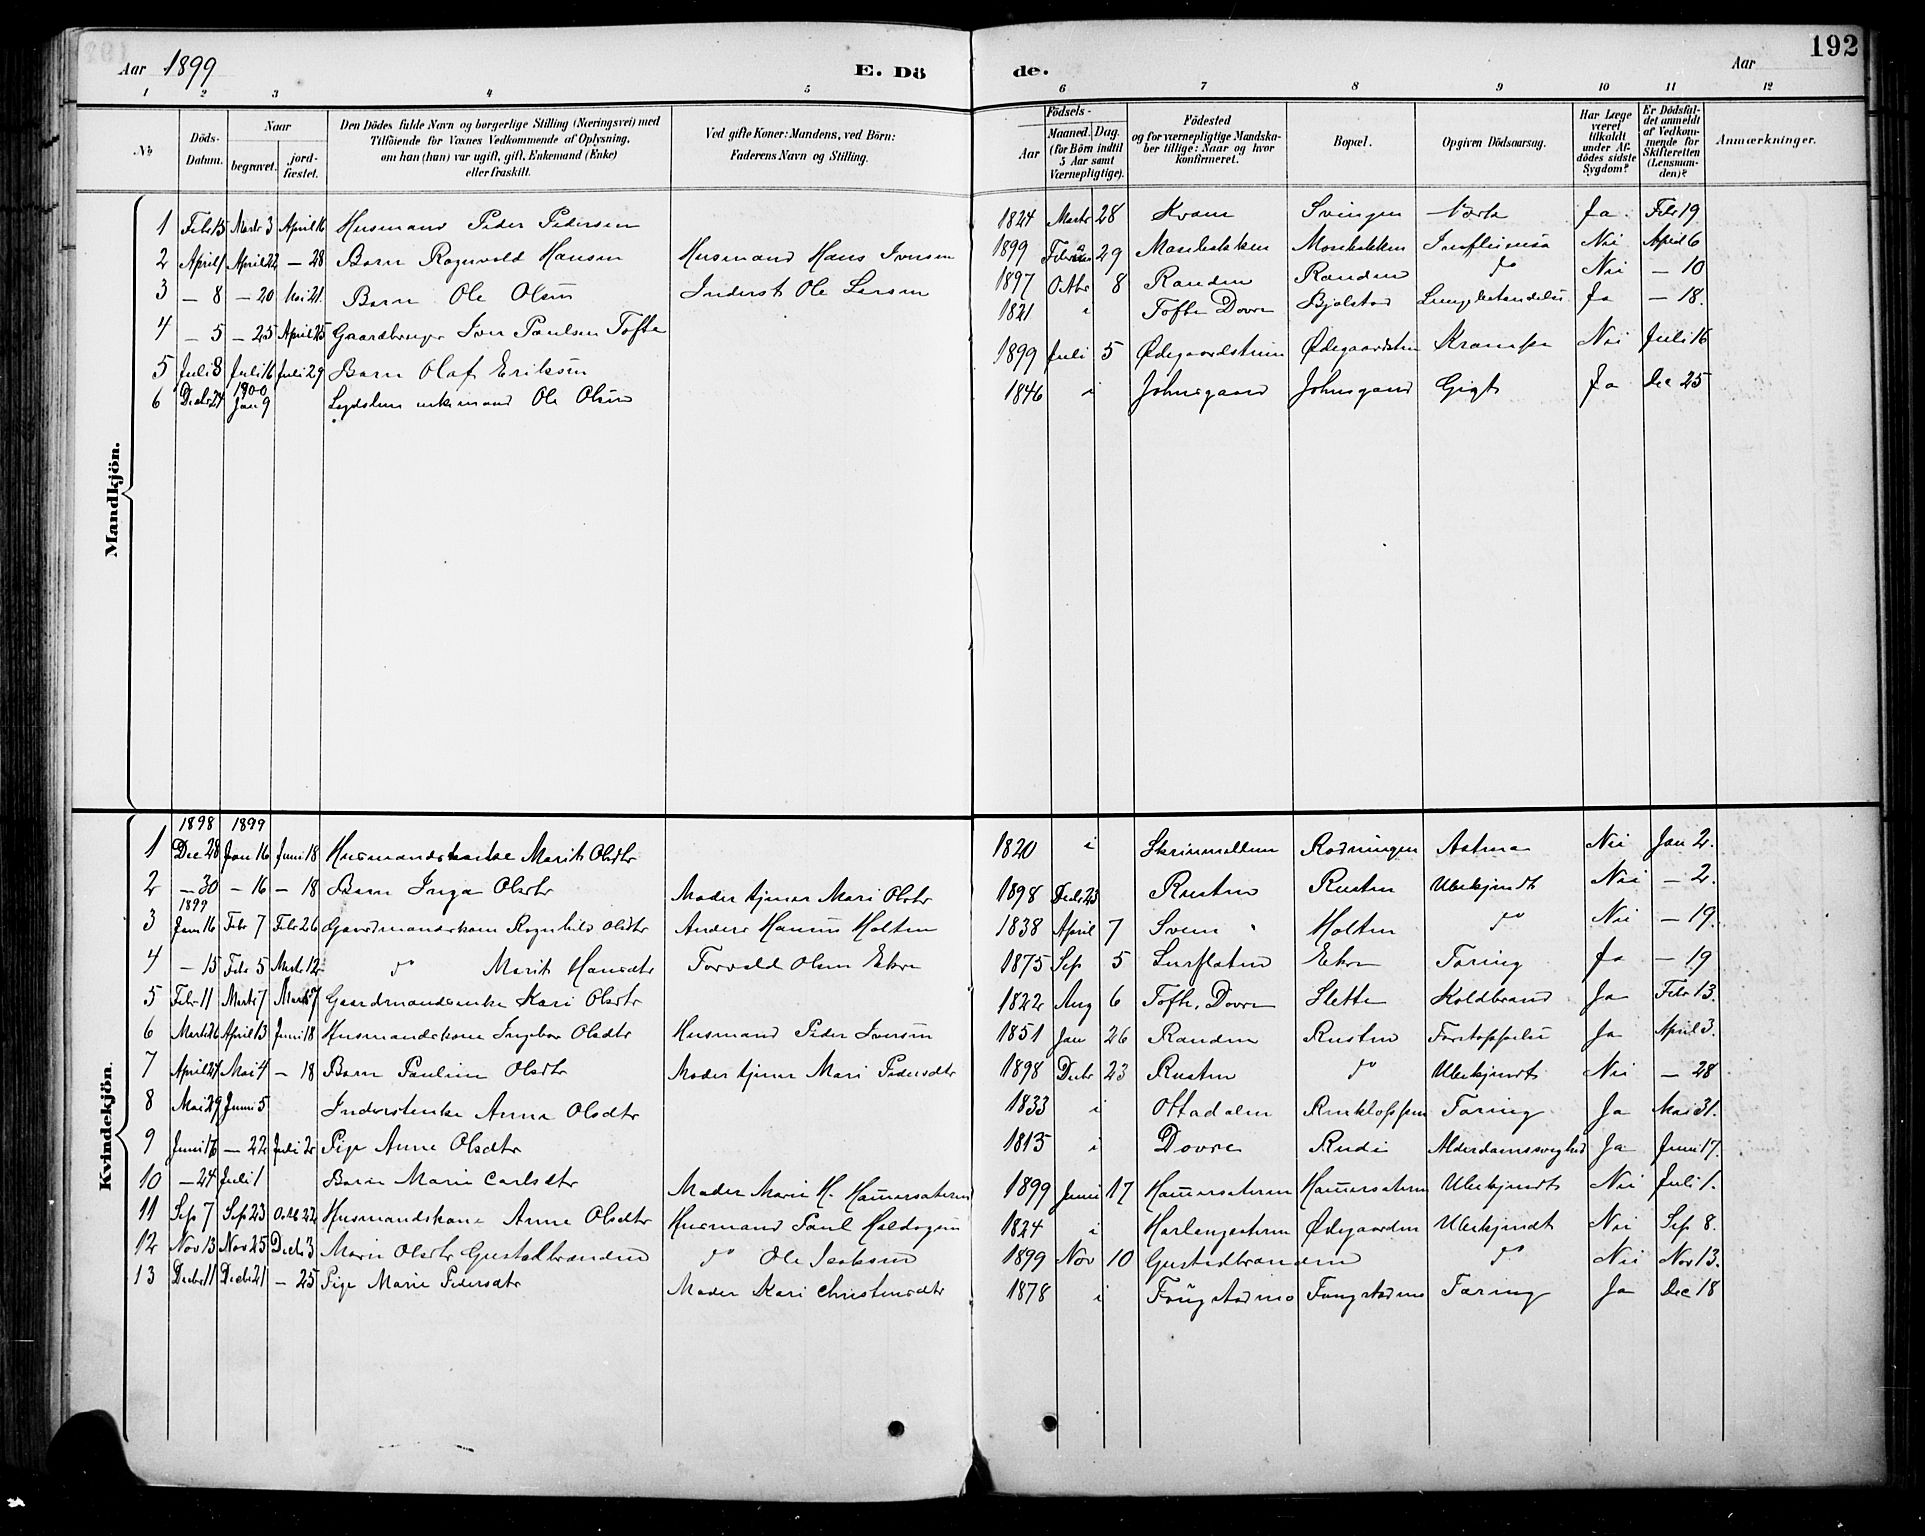 192
Aar 1899 E. Dö de. Aar
1 2 3 4 5 6 7 8 9 10 11 12
No
Döds-Datum.
Naar begravet. jord-fæstet.
Den Dödes fulde Navn og borgerlige Stilling (Næringsvei) med Tilföiende for Voxnes Vedkommende af Oplysning, om han (hun) var ugift, gift, Enkemand (Enke) eller fraskilt.
Ved gifte Koner: Mandens, ved Börn: Faderens Navn og Stilling.
Födsels- Aar Maaned. Dag. (for Börn indtil 5 Aar samt Værnepligtige).
Födested og for værnepligtige Mandskaber tillige: Naar og hvor konfirmeret.
Bopæl.
Opgiven Dödsaarsag.
Har Læge været tilkaldt under Afdödes sidste Sygdom?
Er Dödsfaldet anmeldt af Vedkommende for Skifteretten (Lensmanden)?
Anmærkninger.
Mandkjön.
1 Febr 15 Marts 3 April 16 Husmand Peder Pedersen 1824 Marts 28 Kvam Svingen Værk Ja Febr 19
2 April 1 April 22 — 28 Barn Ragnvald Hansen Husmand Hans Iversen 1899 29 Mosebakken Mosebakken Influensa Nei April 6
3 — 8 — 20 Mai 21. Barn Ole Olsen Inderst Ole Larsen 1897 Octbr 8 Randen Randen do Nei — 10
4 — 5 — 25 April 25 Gaardbruger Iver Paulsen Tofte 1821 i Tofte Dovre Bjølstad Ja — 18.
5 Juli 8 Juli 16 Juli 29 Barn Olaf Eriksen 1899 Juli 5 Ødegaardstuen Ødegaardstuen Krampe Nei Juli 16
6 Decbr 24 1900 Jan 9 enkemand Ole Olsen 1846 i Johnsgaard Johnsgaard Gigt Ja Dec 25
Kvindekjön.
1898 1899
1 Dec 28 Jan 16 Juni 18 Marit Olsdtr 1820 i Rødningen Astma Nei Jan 2.
2 — 30 — 16 — 18 Barn Inga Olsdtr Moder tjener Mari Olsdtr 1898 Decbr 23 Rusten Rusten Ubekjendt Nei — 2.
1899
3 Jan 16 Febr 7 Febr 26 Gaardmandskone Ragnhild Olsdtr Anders Hansen Holten 1838 April 7 Sveen Holten do Nei — 19.
4 — 15 Febr 5 Marts 12 do Marit Hansdtr Torvald Olsen Ekre 1875 Sep 5 Surfloten Ekre Tæring Ja — 19
5 Febr 11 Marts 7 Marts 7 Gaardmandsenke Kari Olsdtr 1822 Aug 6 Tofte, Dovre Slette Koldbrand Ja Febr 13.
6 Marts 26 April 13 Juni 18 Husmandskone Ingebor Olsdtr Husmand Peder Iversen 1851 Jan 26 Randen Rusten Forstoppelse Ja April 3.
7 April 27 Mai 4 — 18 Barn Pauline Olsdtr Moder tjener Mari Pedersdtr 1898 Decbr 23 Rusten do Ubekjendt Nei — 28
8 Mai 29 Juni 5 Inderstenke Anna Olsdtr 1833 i Ottadalen Tæring Ja Mai 31.
9 Juni 16 — 22 Juli 2 Pige Anne Olsdtr 1813 i Dovre Rudi Alderdomssvaghed Ja Juni 17.
10 — 24 Juli 1 Barn Marie Carlsdtr Moder Marie H. Haugsæteren 1899 Juni 17 Haugsæteren Haugsæteren Ubekjendt Nei Juli 1.
11 Sep 7 Sep 23 Octb 22 Husmandskone Anne Olsdtr Husmand Paul Haldogsen 1824 i Ødegaarden Ubekjendt Nei Sep 8.
12 Nov 13 Nov 25 Decbr 3 Marie Olsdtr Gustadbranden do Ole Isaksen 1899 Nov 10 Gustadbranden do Nei Nov 13.
13 Decbr 11 Decbr 21 — 25 Pige Marie Pedersdtr Moder Kari Christensdtr 1878 i Faugstadmo Faugstadmo Tæring Ja Dec 18